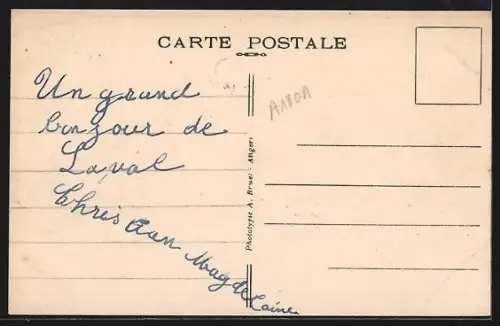 CARTE POSTALE
Un grand
bonjour de
Laval
Chris tian Magdelaine
Phototypie A. Bruel - Angers